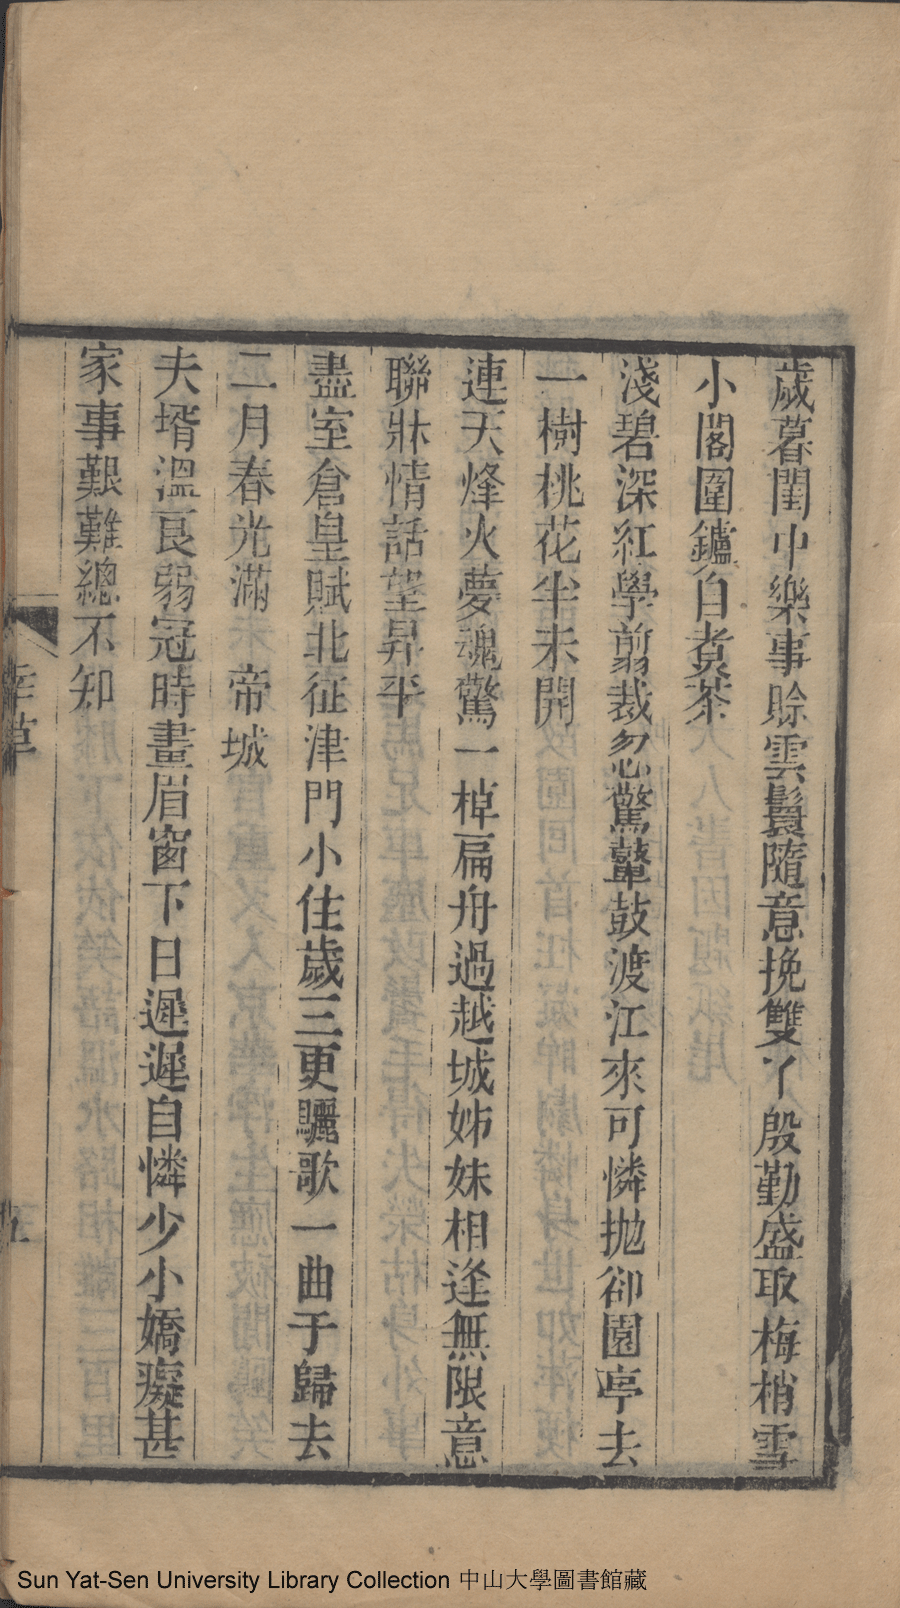 歲暮閨中樂事賒雲鬟隨意挽雙丫殷勤盛取梅梢雪
小閣圍鑪自煑茶
淺碧深紅學翦裁忽驚鼙鼓渡江來可憐拋卻園亭去
一樹桃花半未開
連天烽火夢魂驚一棹扁舟過越城姊妹相逢無限意
聯牀情話望昇平
盡室倉皇賦北征津門小住歲三更驪歌一曲于歸去
二月春光滿 帝城
夫壻溫良弱冠時畫眉窗下日遲遲自憐少小嬌癡甚
家事艱難總不知
草
五
Sun Yat-Sen University Library Collection 中山大學圖書館藏